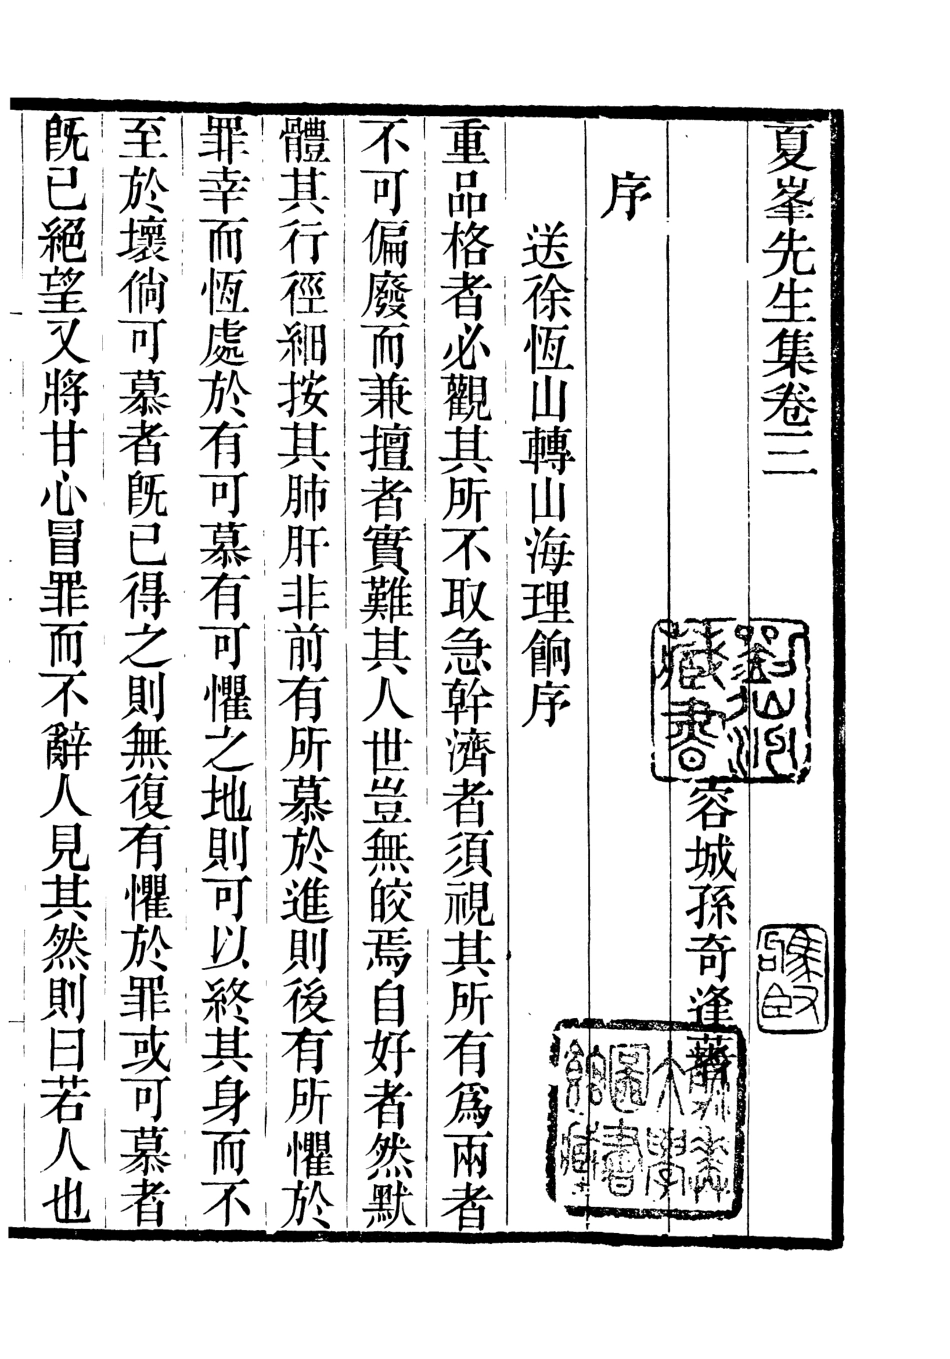 夏峯先生集卷三
容城孫奇逢著
序
送徐恆山轉山海理餉序
重品格者必觀其所不取急幹濟者須視其所有爲兩者
不可偏廢而兼擅者實難其人世豈無皎焉自好者然默
體其行徑細按其肺肝非前有所慕於進則後有所懼於
罪幸而恆處於有可慕有可懼之地則可以終其身而不
至於壞倘可慕者旣已得之則無復有懼於罪或可慕者
旣已絕望又將甘心冒罪而不辭人見其然則曰若人也
藏書